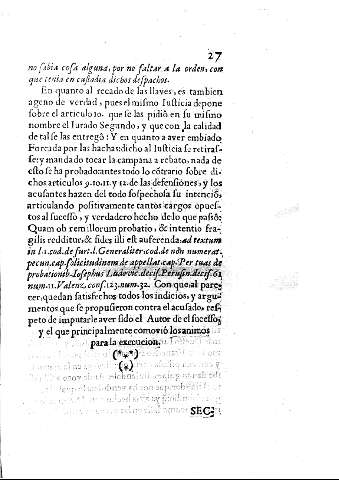 27
no sabia cosa alguna, por no faltar a la orden, con
que tenia en custodia dichos despachos.
En quanto al recado de las llaves, es tambien
ageno de verdad, pues el mismo Iusticia depone
sobre el articulo 10. que se las pidiò en su mismo
nombre el Iurado Segundo, y que con la calidad
de tal se las entregò: Y en quanto a aver embiado
Forcada por las hachas: dicho al Iusticia se retiras-
se: y mandado tocar la campana a rebato, nada de
esto se ha probado: antes todo lo cõtrario sobre di-
chos articulos 9. 10. 11. y 12. de las defensiones, y los
acusantes hazen del todo sospechosa su intenciõ,
articulando positivamente tantos cargos opues-
tos al sucesso, y verdadero hecho de lo que passò:
Quam ob rem illorum probatio, & intentio fra-
gilis redditur, & fides illi est auferenda: ad textum
in l. 1. cod. de furt. l. Generaliter cod. de non numerat.
pecun. cap. sollicitudinem de appellat. cap. Per tuas de
probationib. Iosephus Ludovic. decis. Perusin. decis. 61
num. 11. Valenc. cons. 123. num. 32. Con que al pare-
cer, quedan satisfechos todos los indicios, y argu-
mentos que se propusieron contra el acusado, res-
peto de imputarle aver sido el Autor de el sucesso,
y el que principalmente comoviò los animos
para la execucion.
(*⁎*)
(*)
SEC-